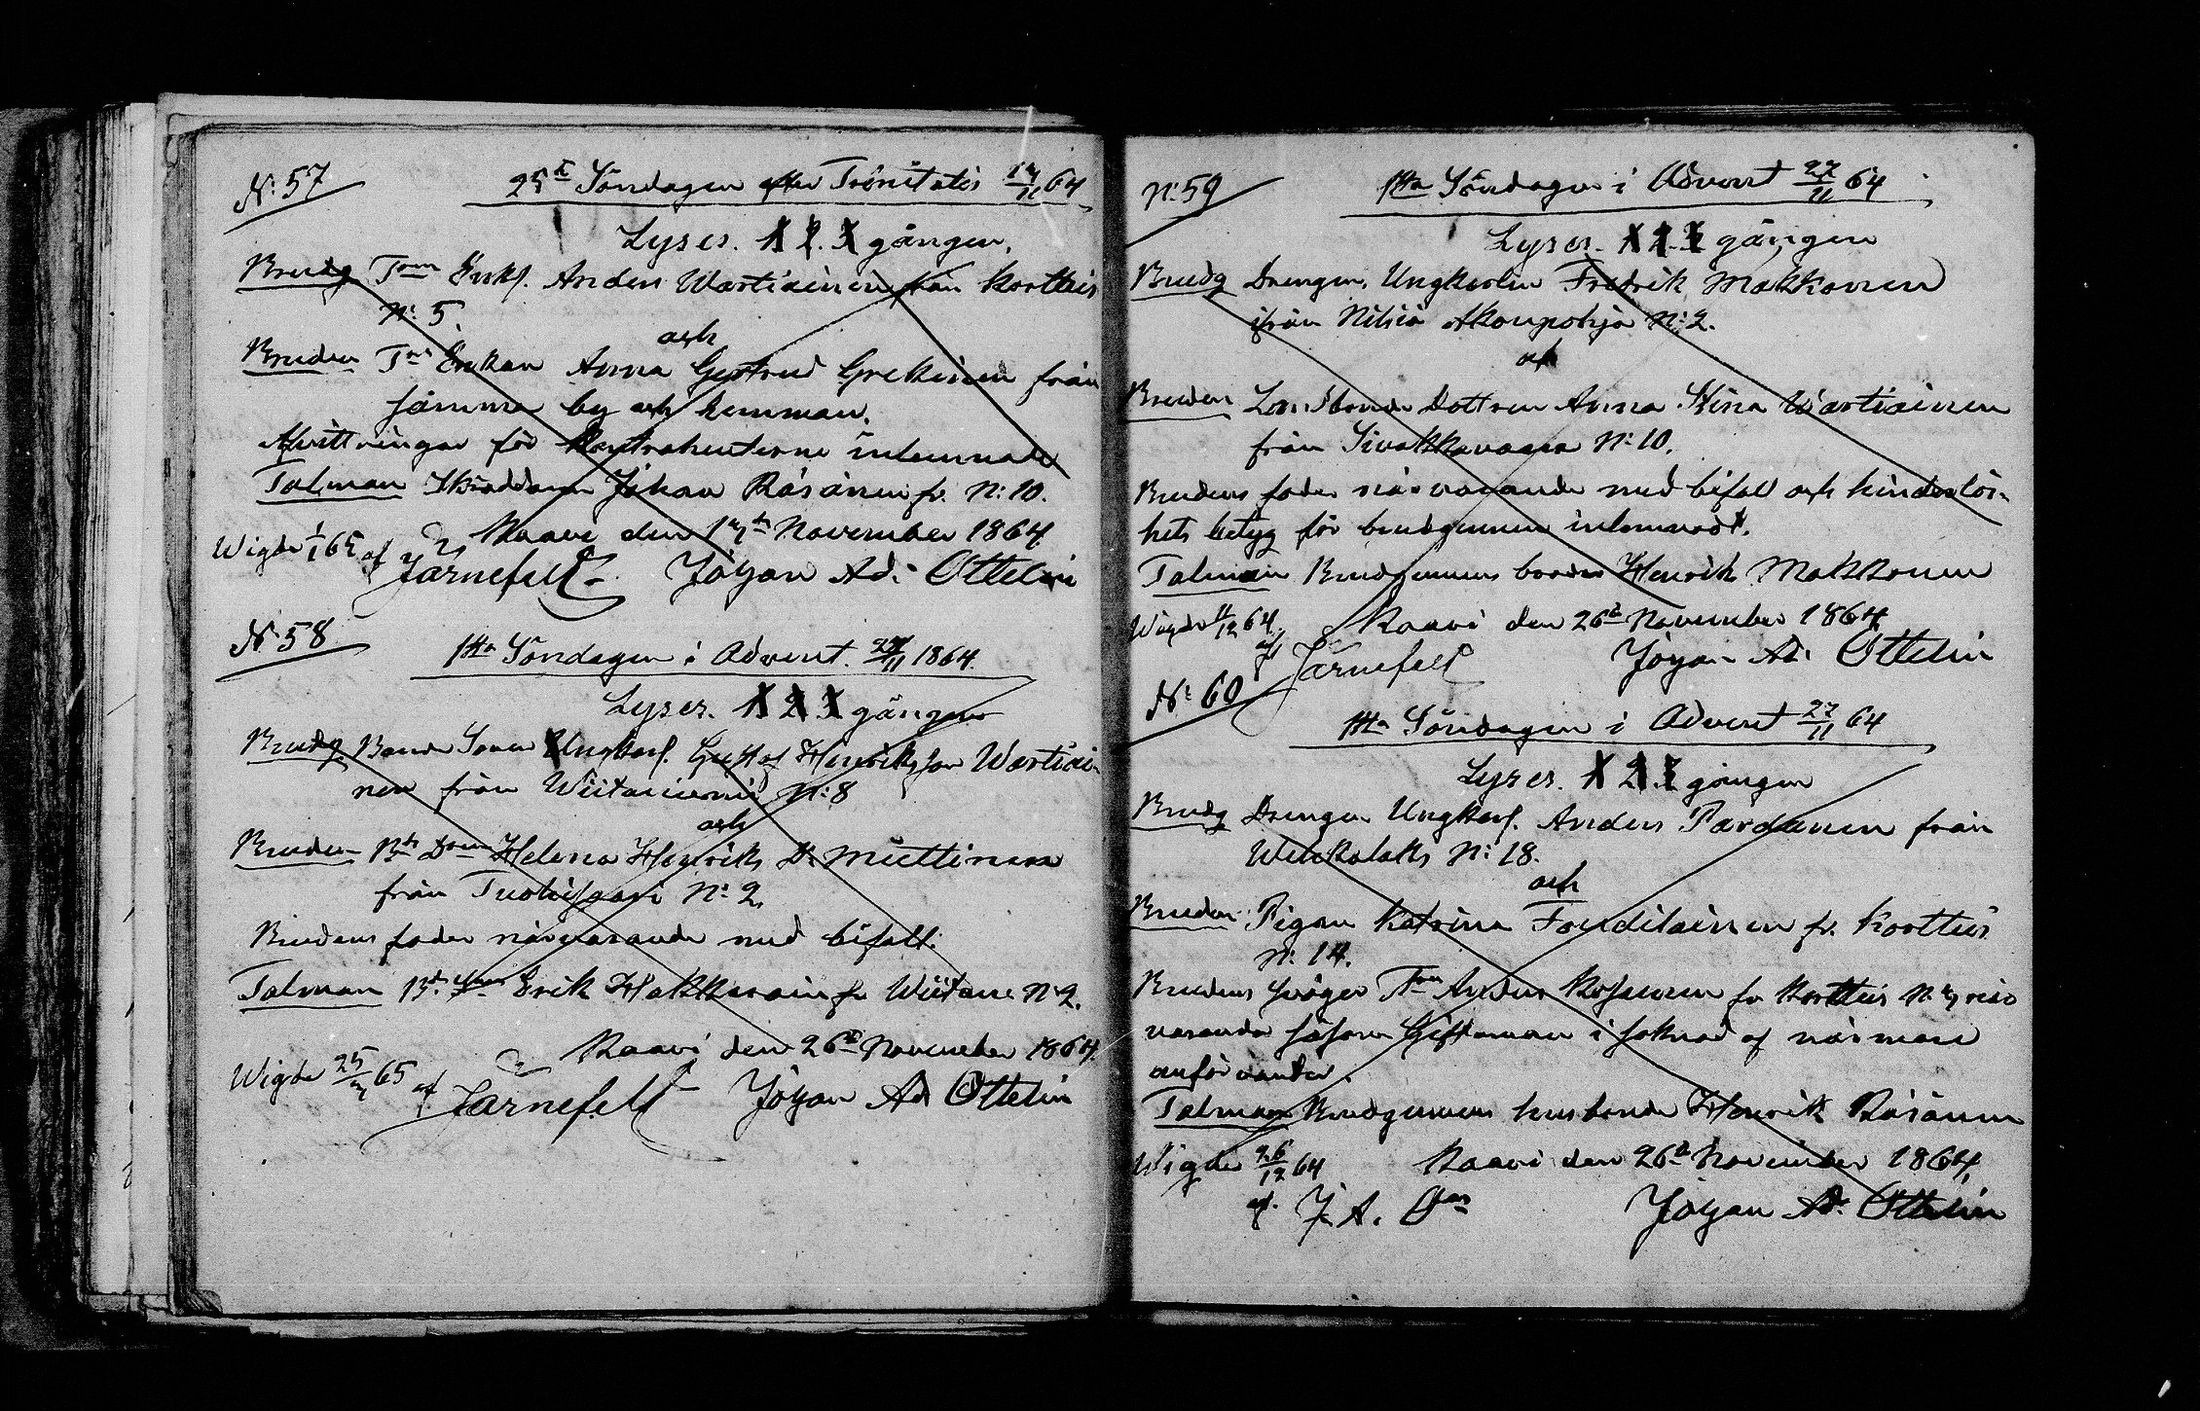 N: 57
25te Söndagen efter Trinitatis 14/11 64
Lyses. 1 2. 3 gången.
Brudg Torp. Enkl. Anders Wartiainen från Korttis
N: 5
och
Bruden T. Enkan Anna Gertrud Grekinen från
samma by och hemman.
Afvittringar för Kontrahenterne inlemnade
Talman Skräddaren Johan Räsänen fr. N: 10.
Kaavi den November 1864.
Wigde 1/1 65 af
Järnefelt Johan Ad. Ottelin
N: 58
1sta Söndagen i Advent. 27/11 1864.
Lyses. 1 2 3 gången
Brudg Bonde Sonen Ungkarl. Gustaf Henriksson Wartiai-
nen från Wiitaniemi N: 8
och
Bruden Helena Henriks D. Miettinen
från N: 2
Brudens fader närvarande med bifall.
Talman Erik Hakkarain fr Wiitane N: 2.
Kaavi den 26te November 1864.
Wigde 25/ 65 af
Järnefelt Johan Ad Ottelin
N: 59
1sta Söndagen i Advent 27/11 64
Lyses. 1 2. 3 gången
Brudg Drengen, Ungkarlen Fredrik Makkonen
ifrån Nilsiä Akonpohja N: 2.
och
Bruden Landbonde Dottren Anna Stina Wartiainen
från Sivakkavaara N: 10.
Brudens fader närvarande med bifall och hinderlös-
hets betyg för brudgummen inlemnadt.
Talman Brudgummens broder Henrik Makkonen
Kaavi den 26te November 1864
Wigde 11/12 64. af
Järnefelt Johan Ad. Ottelin
N: 60
1sta Söndagen i Advent 27/11 64
Lyses. 1 2. 3 gången
Brudg Drengen Ungkarl. Anders Pardanen från
N: 18.
och
Bruden Pigan Katrina fr. Korttis
N: 14.
Brudens svåger Anders Kosunen fr Korttis N: när
varande såsom Giftoman i saknad af närmare
anförvandter.
Talman Brudgummens husbonde Henrik Räsänen
Wigde 26/12 64 Kaavi den 26te November 1864,
af. J. A. Johan Ad. Ottelin